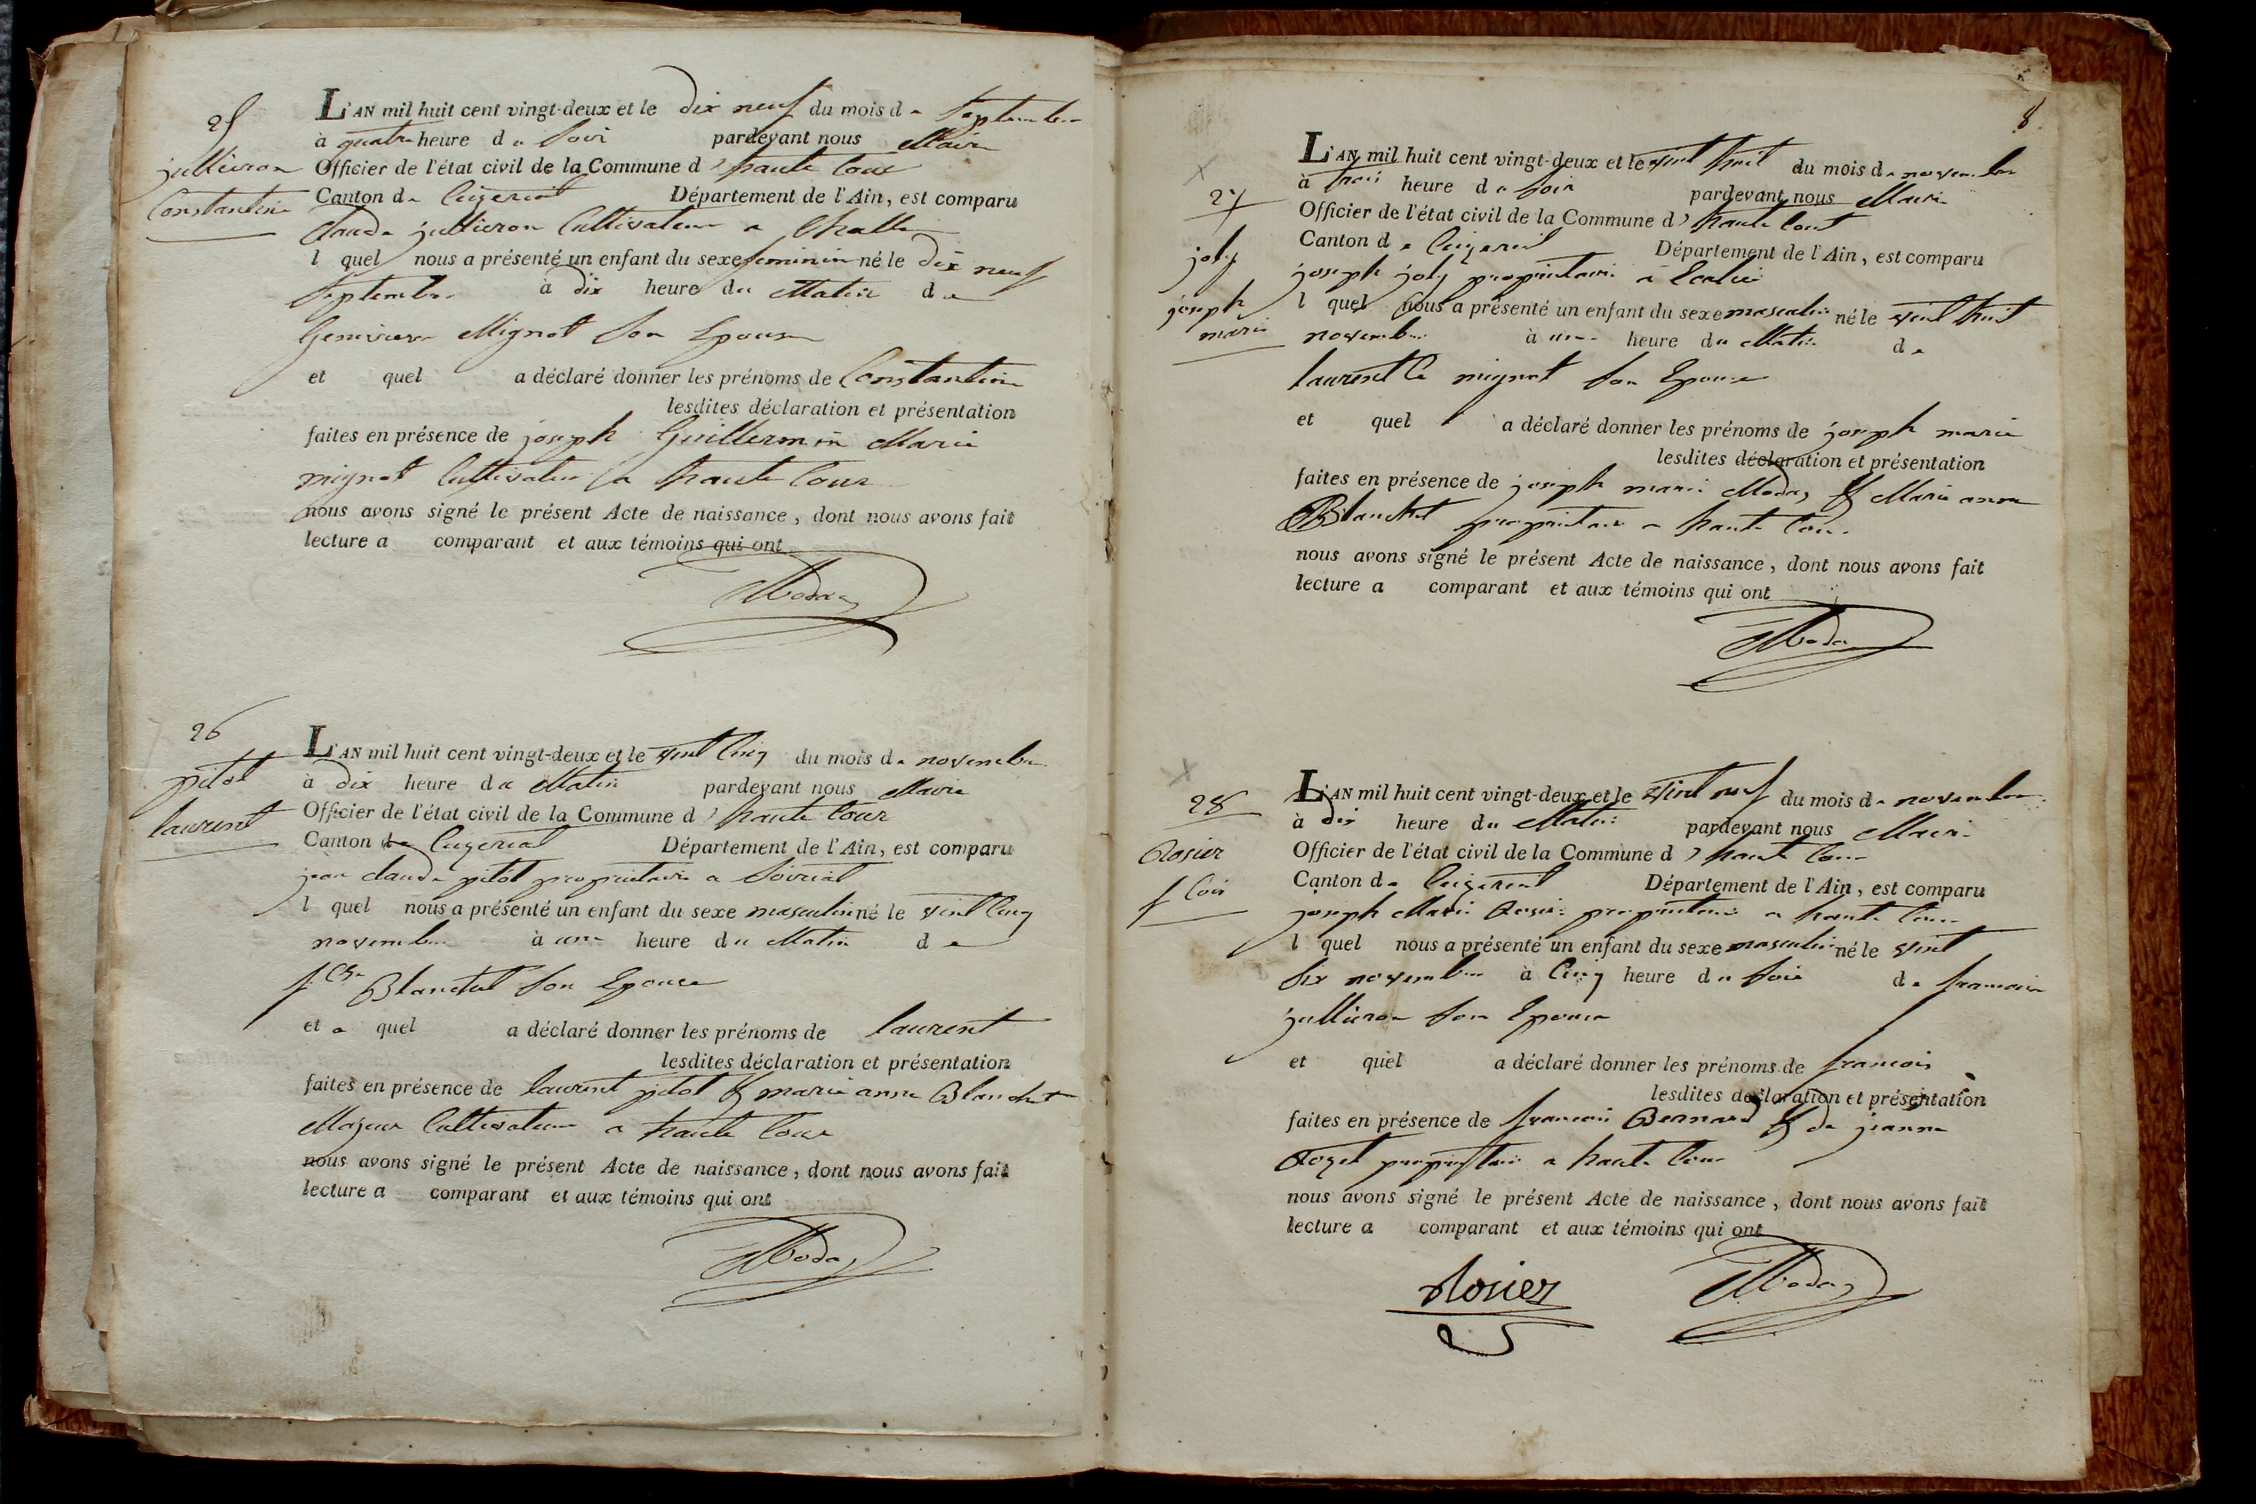 25
jullieron
Constantine
L'AN mil huit cent vingt-deux et le dix neuf du mois de septembre
à quatre heure du soir pardevant nous Maire
Officier de l'état civil de la Commune d'haute Cour
Canton de Ceizeriat Département de l'Ain, est comparu
Claude jullieron Cultivateur a Challe
l quel nous a présenté un enfant du sexe feminin né le dix neuf
septembre à dix heure du Matin de
Genvieve Mignot son Epouse
et quel a déclaré donner les prénoms de Constantine
lesdites déclaration et présentation
faites en présence de joseph Guillermin Marie
mignot Cultivateur a haute Cour
nous avons signé le présent Acte de naissance, dont nous avons fait
lecture a comparant et aux témoins qui ont
26
pitot
laurent
L'AN mil huit cent vingt-deux et le vint Cinq du mois de novembre
à dix heure du Matin pardevant nous Maire
Officier de l'état civil de la Commune d'haute Cour
Canton de Ceyzeriat Département de l'Ain, est comparu
jean claude pitot proprietaire a soiriat
l quel nous a présenté un enfant du sexe masculin né le vint Cinq
novembre à une heure du Matin de
fcse Blanchet son Epouse
et a quel a déclaré donner les prénoms de laurent
lesdites déclaration et présentation
faites en présence de laurent pitot & marie anne Blanchet
Majeur Cultivateur a haute Cour
nous avons signé le présent Acte de naissance, dont nous avons fait
lecture a comparant et aux témoins qui ont
8
27
joly
joseph
marie
L'AN mil huit cent vingt-deux et le vint huit du mois de novembre
à trois heure de soir pardevant nous Maire
Officier de l'état civil de la Commune d'haute Cour
Canton de Ceizeriat Département de l'Ain, est comparu
joseph joly proprietaire a
l quel nous a présenté un enfant du sexe masculin né le vint huit
novembre à une heure du Matin de
laurentCe mignot son Epouse
et quel a déclaré donner les prénoms de joseph marie
lesdites déclaration et présentation
faites en présence de joseph marie Moday & Marie anne
Blanchet proprietaire a haute Cour
nous avons signé le présent Acte de naissance, dont nous avons fait
lecture a comparant et aux témoins qui ont
28
Rosier
fcois
L'AN mil huit cent vingt-deux et le vint neuf du mois de novembre
à dix heure du Matin pardevant nous Maire
Officier de l'état civil de la Commune d'haute Cour
Canton de Ceizeriat Département de l'Ain, est comparu
joseph Marie Rosier proprietaire a haute Cour
l quel nous a présenté un enfant du sexe masculin né le vint
six novembre à Cinq heure du soir de francoise
jullieron son Epouse
et quel a déclaré donner les prénoms de francois
lesdites déclaration et présentation
faites en présence de francois Bernard & de jeanne
Rozet proprietaire a haute Cour
nous avons signé le présent Acte de naissance, dont nous avons fait
lecture a comparant et aux témoins qui ont
Rosier